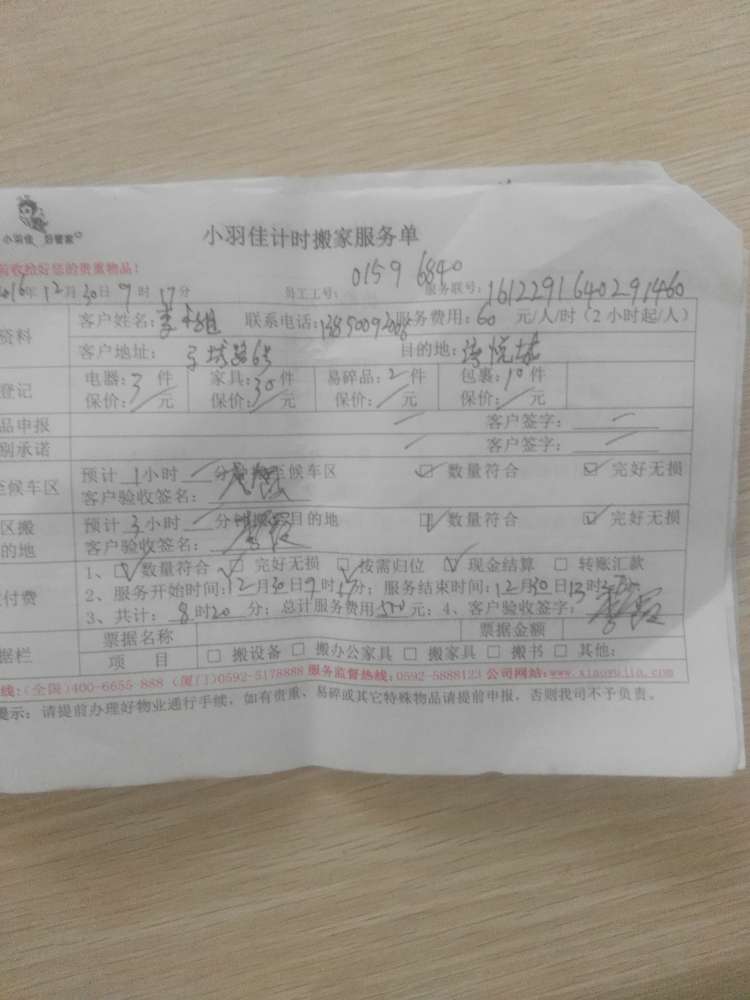 小羽佳 好管家
小羽佳计时搬家服务单
收拾好您的贵重物品!
0159 6840
2016年12月30日9时17分 员工工号: 服务联号:1612291640291460
资料 客户姓名: 联系电话: 服务费用:60 元/人/时(2小时起/人)
客户地址: 目的地:
登记 电器:3件 家具:30件 易碎品:2件 包裹:10件
保价:/元 保价:/元 保价:/元 保价:/元
品申报 客户签字:
别承诺 客户签字:
至候车区 预计 1小时 分钟 至候车区 数量符合 完好无损
客户验收签名:
区搬 预计 3小时 分钟 目的地 数量符合 完好无损
的地 客户验收签名:
1、 数量符合 完好无损 按需归位 现金结算 转账汇款
付费 2、服务开始时间:12月30日9时17分;服务结束时间:12月30日13时
3、共计:8时20分;总计服务费用 元;4、客户验收签字:
票据名称 票据金额
据栏 项 目 搬设备 搬办公家具 搬家具 搬书 其他:
线:(全国)400-6655-888 (厦门)0592-5178888 服务监督热线:0592-5888123 公司网站:www.xiaoyujia.com
提示:请提前办理好物业通行手续,如有贵重、易碎或其它特殊物品请提前申报,否则我司不予负责。